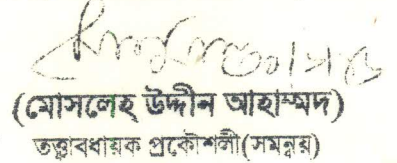 (মোসলেহ উদ্দীন আহাম্মদ)
তত্ত্বাবধায়ক প্রকৌশলী(সমন্বয়)